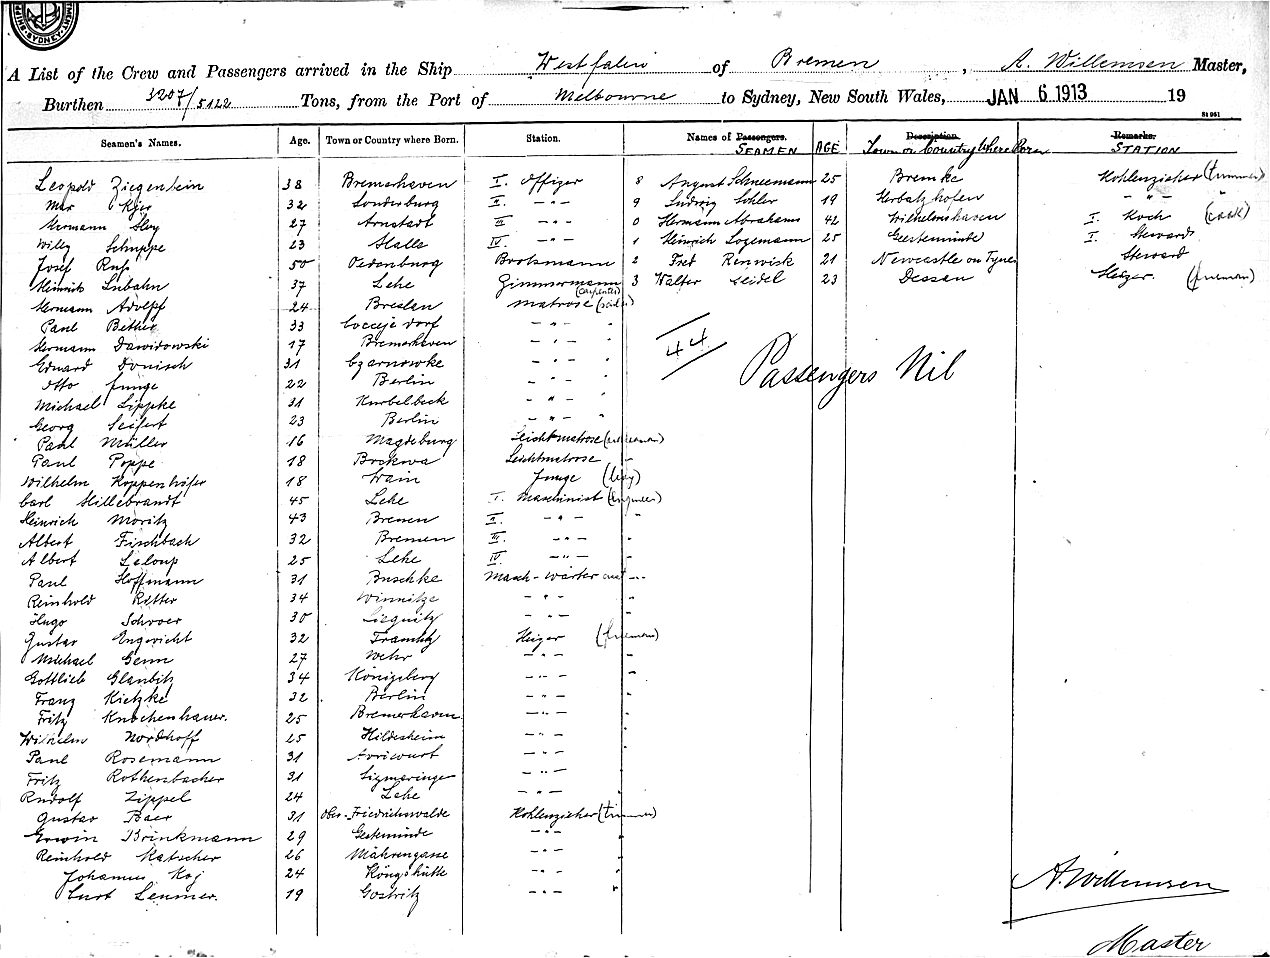 SYDNEY
A List of the Crew and Passengers arrived in the Ship Westfalen of Bremen, A. Willemsen Master,
Burthen 3207/5122 Tons, from the Port of Melbourne to Sydney, New South Wales, JAN 6 1913 19
Seamen's Names. Age. Town or Country where Born. Station. Names of Passengers. SEAMEN AGE Description. Town or Country Where Born Remarks. STATION
Leopold Ziegenbein 38 Bremerhaven I. Offizer 8 August Schneemann 25 Bremke Kohlenzieher (trimmer)
Max Kjer 32 Sonderburg II. -"- 9 Ludwig Sohler 19 Herbolzhofen -"-
Hermann 27 Arnstadt III. -"- 0 Hermann Abrahams 42 Wilhelmshaven I. Koch (cook)
Willy Schuppe 23 Halle IV. -"- 1 Heinrich Logemann 25 Geestemünde I. Steward
Josef 50 Oedenburg Bootsmann 2 Fred Renwick 21 Newcastle on Tyne Steward
Heinrich Lubahn 37 Lehe Zimmermann (carpenter) 3 Walter Seidel 23 Dessau Heizer (fireman)
Hermann Adolpf 24 Breslau Matrose
Paul Bethke 33 -"-
Hermann Dawidowski 17 Bremerhaven -"-
Eduard Donisch 31 Czarnowke -"-
Otto Junge 22 Berlin -"-
Michael Lippke 31 -"-
Georg Seifert 23 Berlin -"-
Paul Müller 16 Magdeburg Leichtmatrose
Paul Poppe 18 Bockwa Leichtmatrose "
Wilhelm Koppenhöfer 18 Wain Junge (boy)
Carl Hillebrandt 45 Lehe I. Maschinist (engineer)
Heinrich Moritz 43 Bremen II. -"- "
Albert Fischbach 32 Bremen III. -"- "
Albert Leloup 25 Lehe IV. -"- "
Paul Hoffmann 31 Buschke Masch-wärter
Reinhold Ritter 34 Winnitze -"- "
Hugo Schroer 30 Liegnitz -"- "
Gustav Engwicht 32 Heizer (fireman)
Michael Genn 27 Wehr -"- "
Gottlieb Glaubitz 34 Königsberg -"- "
Franz Kietzke 32 Berlin -"- "
Fritz Knochenhauer. 25 Bremerhaven -"- "
Wilhelm Nordhoff 25 Hildesheim -"- "
Paul Rosemann 31 Avricourt -"- "
Fritz Rothenbacher 31 Sigmaringen -"- "
Rudolf Zippel 24 Lehe -"- "
Gustav Baer 31 Ober-Friedrichswalde Kohlenzieher (trimmer)
Erwin Brinkmann 29 Geestemünde -"- "
Reinhold Katscher 26 Mährengasse -"- "
Johannes Koj 24 Königshütte -"- "
Kurt Lemmer. 19 Gostritz -"- "
44
Passengers Nil
A. Willemsen
Master